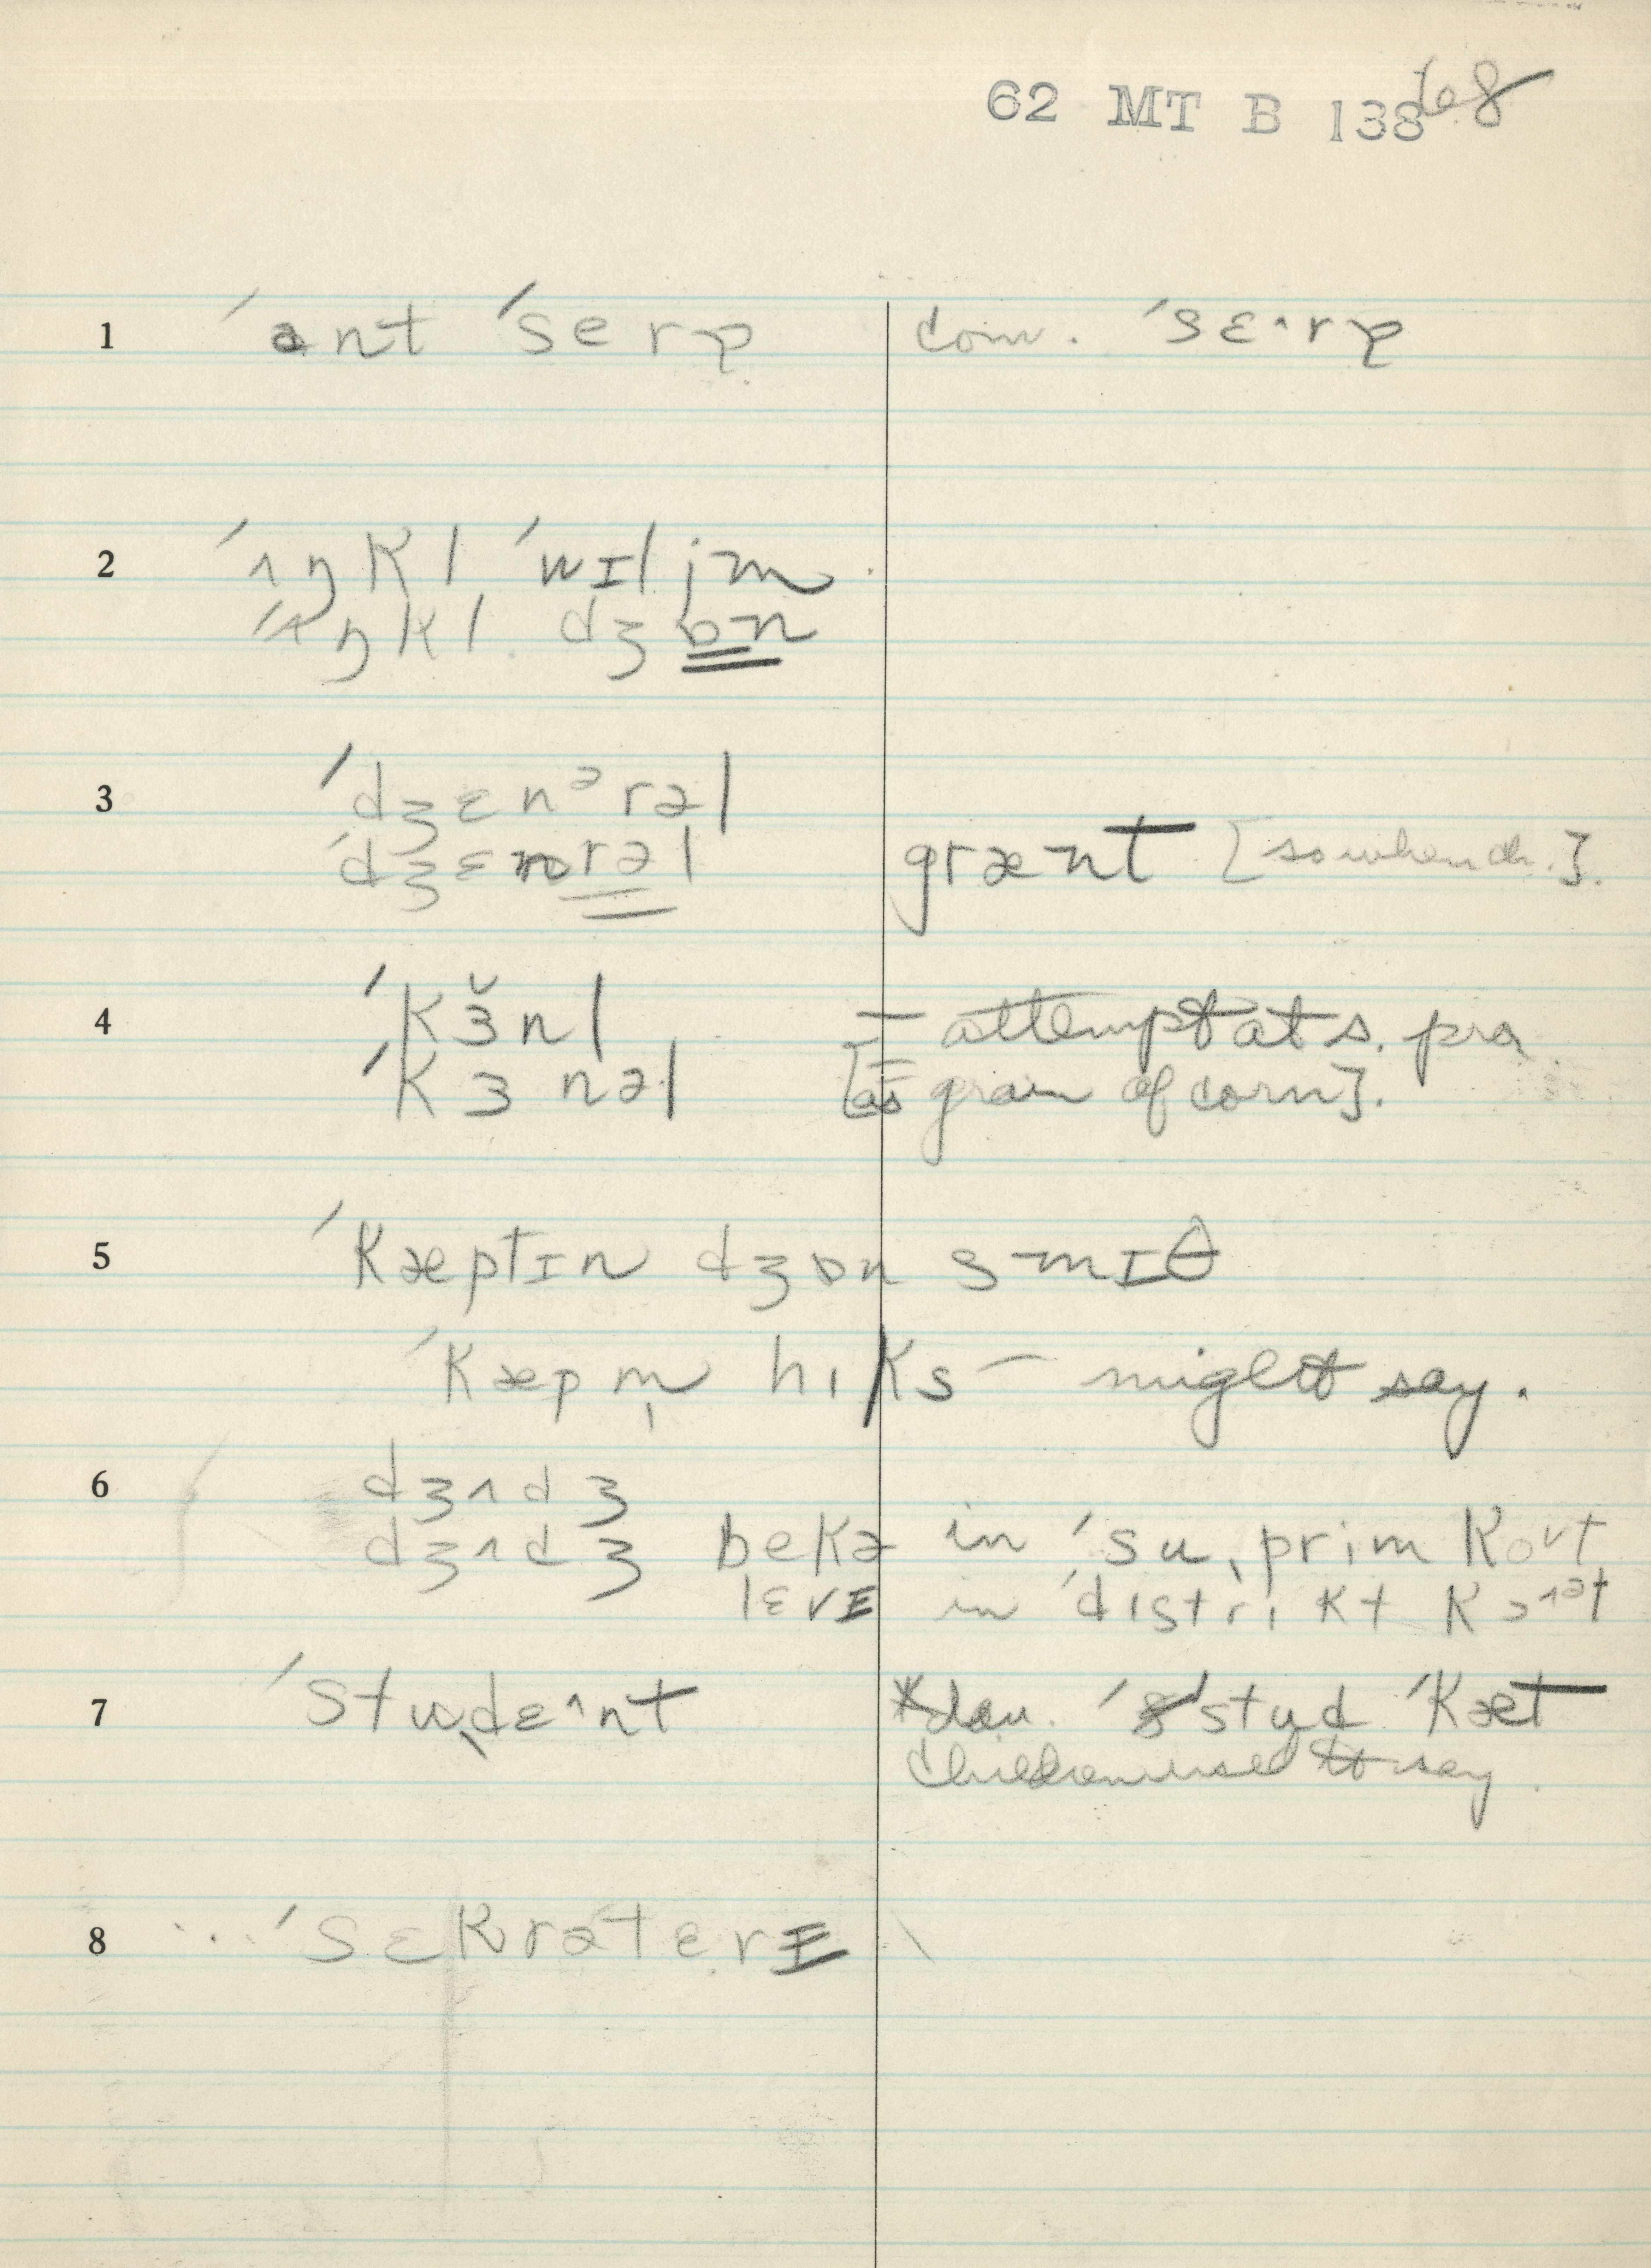 62 MT B 138 68
1 ˈant ˈserə com. ˈsɛ^rə
2 ˈʌŋkl ˈwɪljm
ˈʌŋkl dʒɒn
3 ˈdʒɛnᵊrəl
ˈdʒɛnrəl grænt [so when ch.].
4 ˈkɜ̆nl — attempt at s. pro.
ˈkɜnəl [as grain of corn].
5 ˈkæptɪn dʒɒn smɪθ
ˈkæpm̩ hɪks — might say.
6 dʒʌdʒ
dʒʌdʒ bekə in ˈsuˌprim kort
lɛvɪ in ˈdɪstrɪkt
7 ˈstuˌdɛ^nt *dau. ˈstyd ˈkæt
children used to say.
8 ˈsɛkrəterɪ